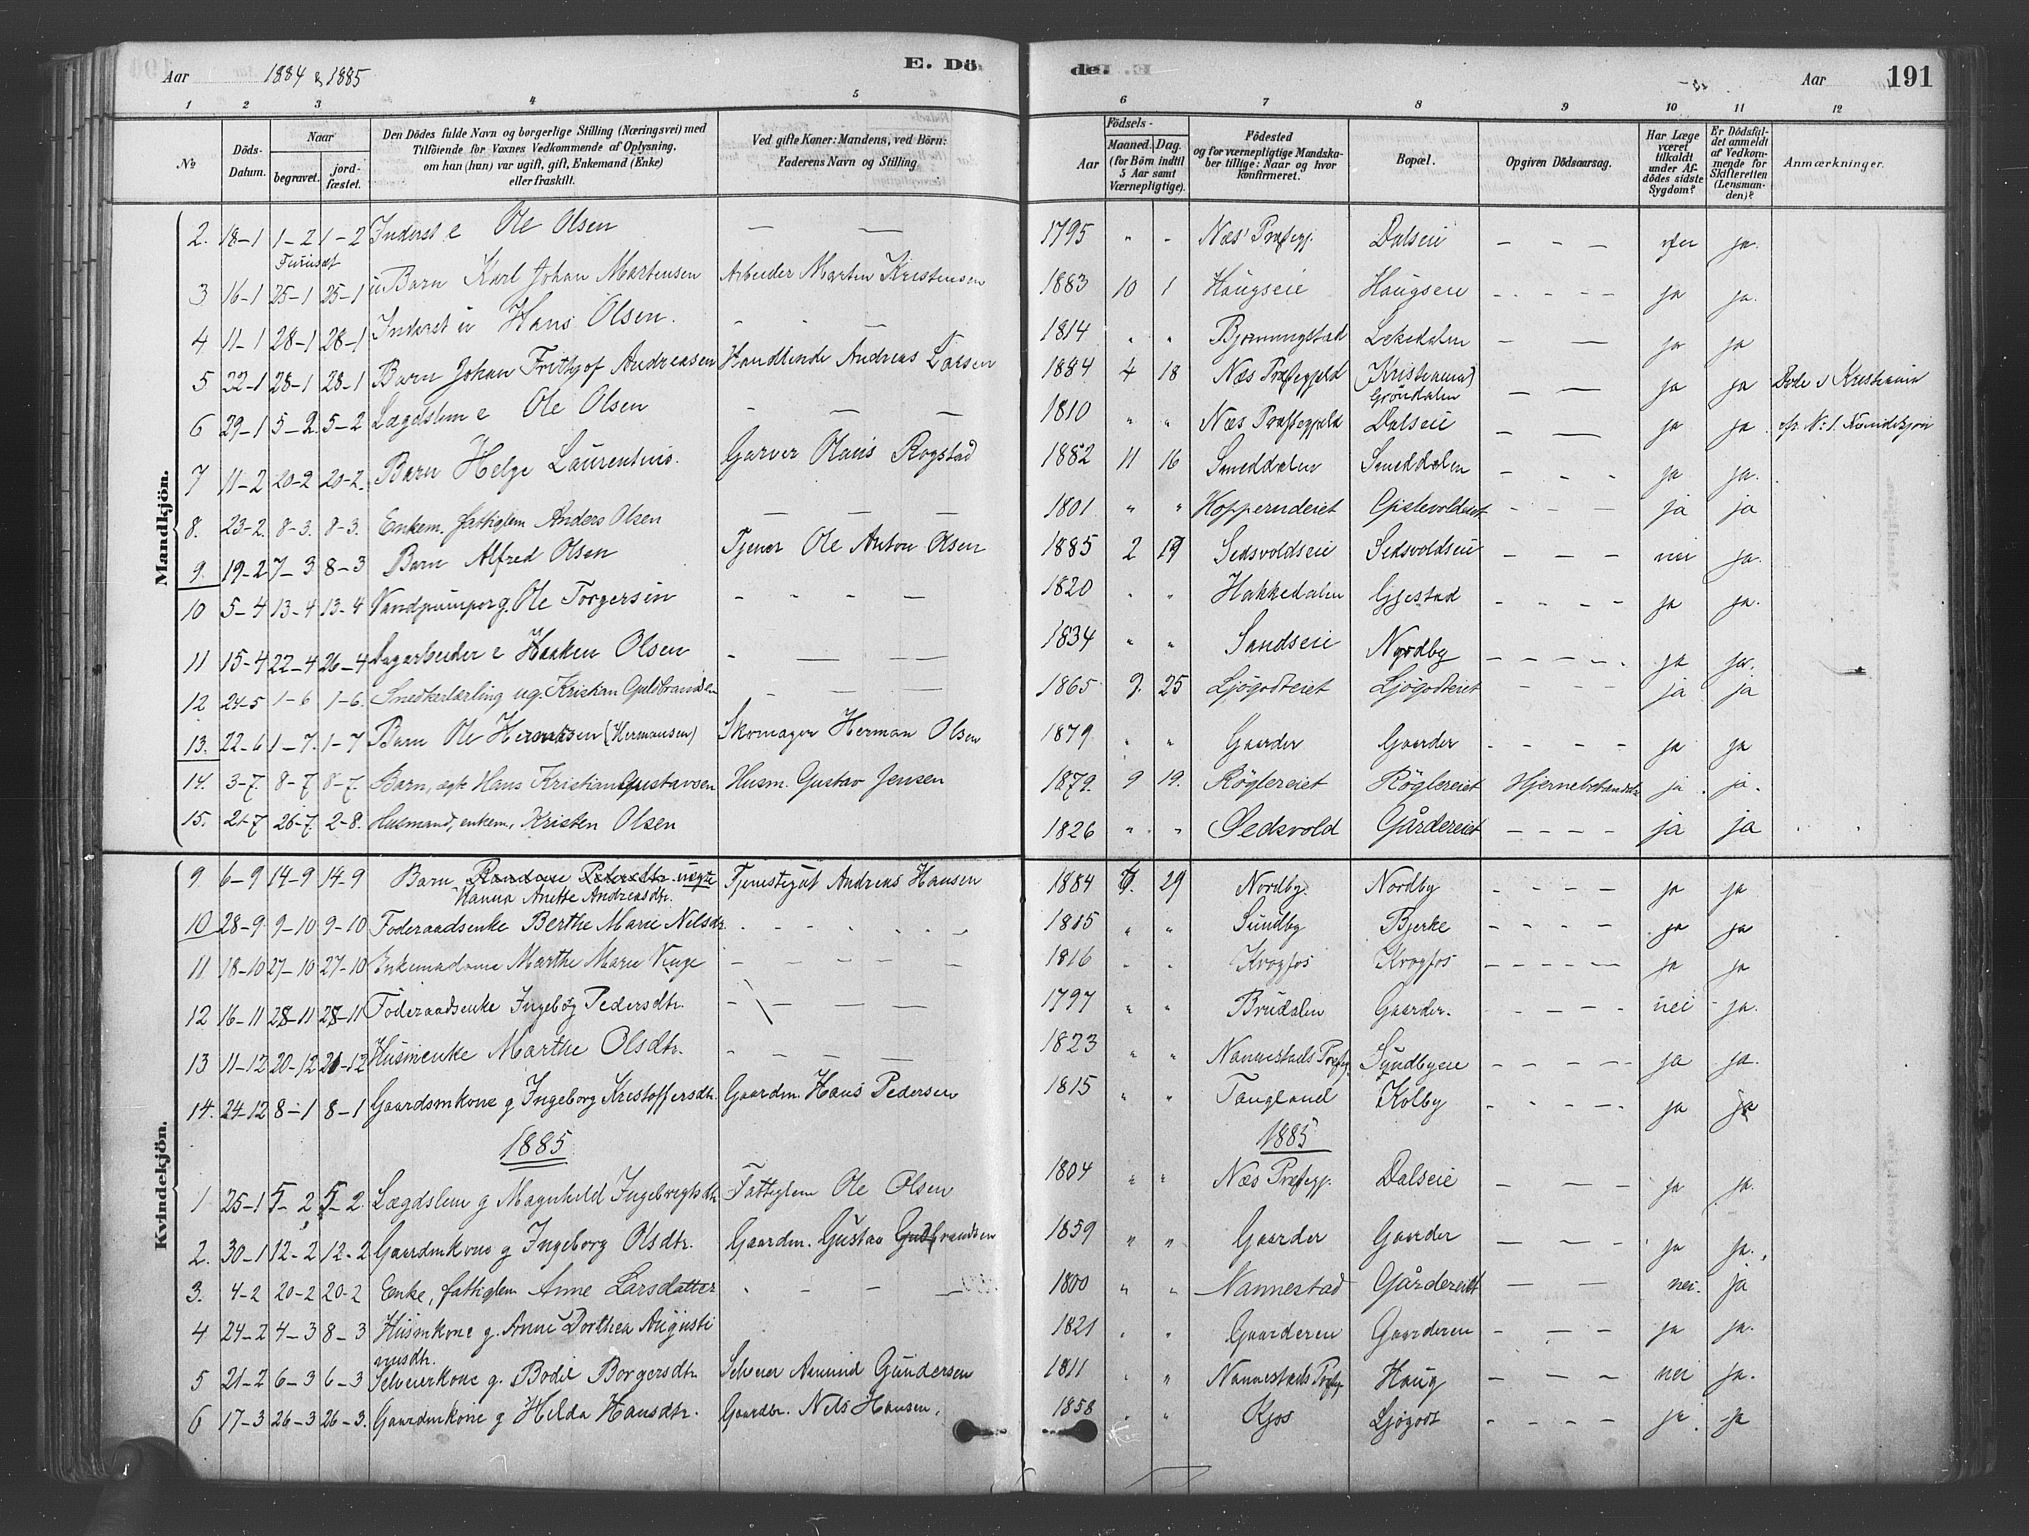 Aar 1884 & 1885 E. Dö- de. Aar 191
1 2 3 4 5 6 7 8 9 10 11 12
No Döds-Datum. Naar begravet. jord-fæstet. Den Dödes fulde Navn og borgerlige Stilling (Næringsvei) med Tilföiende for Voxnes Vedkommende af Oplysning, om han (hun) var ugift, gift, Enkemand (Enke) eller fraskilt. Ved gifte Koner: Mandens, ved Börn: Faderens Navn og Stilling. Födsels- Aar Maaned. Dag. (for Börn indtil 5 Aar samt Værnepligtige). Födested og for værnepligtige Mandskaber tillige: Naar og hvor konfirmeret. Bopæl. Opgiven Dödsaarsag. Har Læge været tilkaldt under Afdödes sidste Sygdom? Er Dödsfaldet anmeldt af Vedkommende for Skifteretten (Lensmanden)? Anmærkninger.
Mandkjön.
2. 18-1 1-2 1-2 Inderst e Ole Olsen — — 1795 " " Næs' Præstegj. Dalseie — — — ja.
Furuset
3 16-1 25-1 25-1 u Barn Karl Johan Martensen Arbeider Martin Kristensen 1883 10 1 Haugseie Haugseie - - - - ja ja.
4 11-1 28-1 28-1 Inderst u Hans Olsen. - - — 1814 " " Bjonningstad Lekedalen — — ja ja
5 22-1 28-1 28-1 Barn Johan Frithjof Andreasen Handlende Andreas Larsen 1884 4 18 Næs Præstegjeld (Kristiania) Grondalen — — ja ja Døde i Kristiania
6 29-1 5-2 5-2 Lægdslem e Ole Olsen - — — 1810 " " Næs Præstegjeld Dalseie — — ja ja
7 11-2 20-2 20-2. Barn Helge Laurentius. Garver Olaus Rogstad 1882 11 16 Smeddalen Smeddalen - — - ja ja.
8. 23-2. 8-3. 8-3. Enkem. fattiglem Anders Olsen — — — 1801 " " Kopperudeiet Gislevoldseiet - — - ja ja
9. 19-2 7-3 8-3 Barn Alfred Olsen Tjener Ole Anton Olsen 1885 2 19 Sedsvoldseie Sedsvoldseie - — - nei ja.
10 5-4 13-4 13-4 Vandpumper g. Ole Torgersen - - - — 1820 " " Hakkedalen Gjestad - - - - ja ja.
11 15-4 22-4 26-4 Sagarbeider e Haaken Olsen - — — 1834 " " Sandseie Nordby - - - - ja ja.
12 24-5 1-6 1-6. Snedkerlærling ug. Kristian Guldbrandsen - — — 1865 9. 25 Ljögodteiet Ljögodteiet - - - ja ja
13. 22-6 1-7. 1-7 Barn Ole Henriksen (Hermansen) Skomager Herman Olsen 1879 " " Gaarder Gaarder - - - - ja ja
14. 3-7. 8-7 8-7. Barn, ægt. Hans Kristian Gustavsen Husm. Gustav Jensen 1879. 9 19. Röglereiet Röglereiet Hjernebetændelse ja ja.
15. 21-7 26-7. 2-8. Husmand, enkem., Kristen Olsen 1826 " " Sedsvold Gårdereiet - - - - ja ja
Kvindekjön.
9. 6-9 14-9 14-9 Barn Petersdtr. uægte Tjenestegut Andreas Hansen 1884 6. 29 Nordby. Nordby - - - - ja ja
Hanna Anette Andreasdtr.
10 28-9. 9-10 9-10 Foderaadsenke Berthe Marie Nilsdtr. - - - - - 1815 " " Sundby Bjerke - - - - ja ja
11 18-10 27-10 27-10 Enkemadame Marthe Marie Vinge - - - — 1816 " " Krogfos Krogfos - - - - - ja ja
12 16-11 28-11 28-11 Föderaadsenke Ingebög Pedersdtr. - - - — 1797 " " Brudalen Gaarder. - - - nei ja.
13 11-12 20-12 20-12 Husmenke Marthe Olsdtr. - - - — 1823 " " Nannestads Præstg. Sundbyeie - - - - ja ja.
14. 24-12 8-1 8-1 Gaardmkone g Ingeborg Kristoffersdtr. Gaardm. Hans Pedersen 1815 " " Tangland Kolby - - - - ja ja
1885 1885
1 25-1 5-2 5-2. Lægdslem g Magnhild Ingebregtsdtr. Fattiglem Ole Olsen 1804 " " Næs Præstegj. Dalseie — — — ja ja.
2. 30-1 12-2 12-2 Gaardmkone g Ingeborg Olsdtr. Gaardm. Gustav Gulbrandsen 1859 " " Gaarder Gaarder - — — ja ja.
3. 4-2 20-2 20-2 Enke, fattiglem Anne Larsdatter - - - — 1800 " " Nannestad Gårdereiet — — nei. ja
4 24-2 4-3 8-3 Husmkone g. Anne Dorthea Augusti 1821 " " Gaarderen Gaarderen - — - ja ja.
nusdtr.
5 21-2 6-3 6-3 Selveierkone g. Bodil Borgersdtr. Selveier Amund Gundersen 1811 " " Nannestads Præstg. Haug - - - - nei ja.
6 17-3 26-3 26-3. Gaardmkone g Hilda Hansdtr. Gaardbr. Nils Hansen. 1858 " " Kjos Ljögodt - - - - ja ja